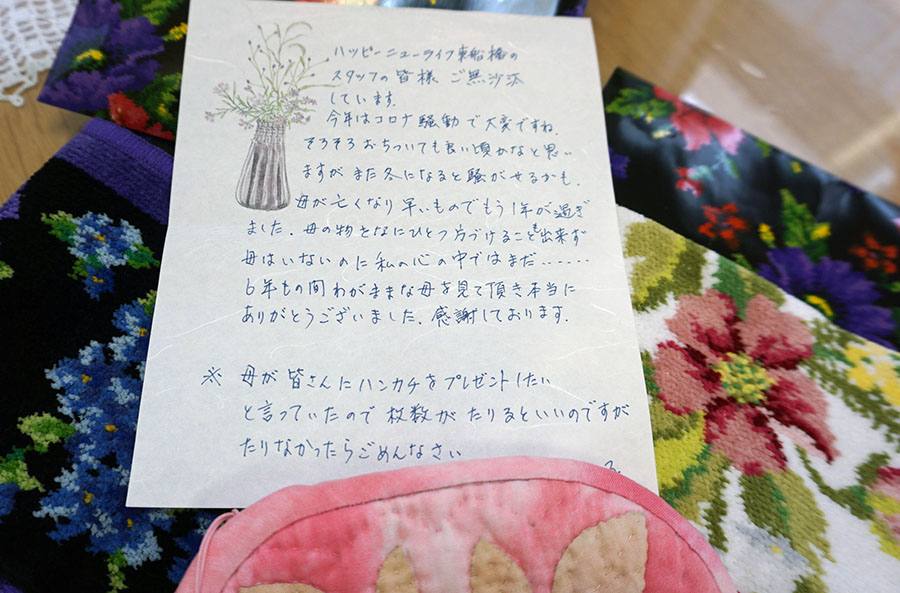 ハッピーニューライフ東船橋の
スタッフの皆様 ご無沙汰
しています.
今年はコロナ騒動で大変ですね.
そろそろおちついても良い頃かなと思い
ますがまた冬になると騒がせるかも.
母が亡くなり早いものでもう1年が過ぎ
ました. 母の物をなにひとつ方づけることも出来ず
母はいないのに私の心の中ではまだ……
6年もの間わがままな母を見て頂き本当に
ありがとうございました. 感謝しております.
※ 母が皆さんにハンカチをプレゼントしたい
と言っていたので枚数がたりるといいのですが
たりなかったらごめんなさい